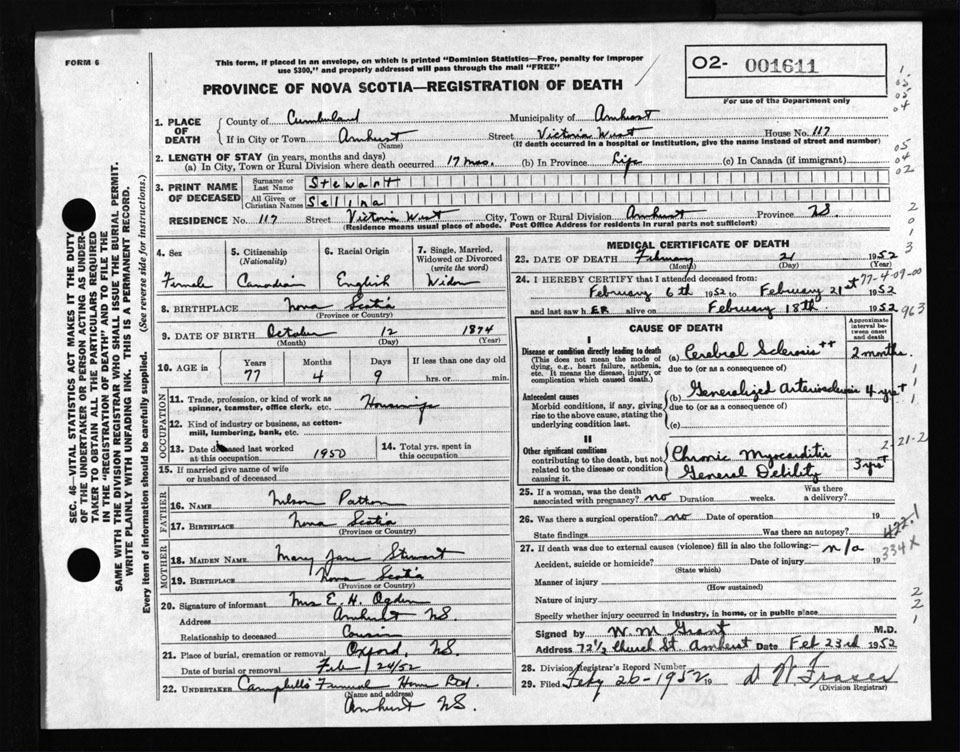 FORM 6
This form, if placed in an envelope, on which is printed "Dominion Statistics—Free, penalty for improper
use $300," and properly addressed will pass through the mail "FREE"
02- 001611
For use of the Department only
PROVINCE OF NOVA SCOTIA—REGISTRATION OF DEATH
1. PLACE OF DEATH
County of Cumberland Municipality of Amherst
If in City or Town Amherst Street Victoria West House No. 117
(Name) (If death occurred in a hospital or institution, give the name instead of street and number)
2. LENGTH OF STAY (in years, months and days)
(a) In City, Town or Rural Division where death occurred 17 mos. (b) In Province Life (c) In Canada (if immigrant)
3. PRINT NAME OF DECEASED
Surname or Last Name Stewart
All Given or Christian Names Selina
RESIDENCE No. 117 Street Victoria West City, Town or Rural Division Amherst Province N.S.
(Residence means usual place of abode. Post Office Address for residents in rural parts not sufficient)
4. Sex
Female
5. Citizenship
(Nationality)
Canadian
6. Racial Origin
English
7. Single, Married, Widowed or Divorced
(write the word)
Widow
8. BIRTHPLACE Nova Scotia
(Province or Country)
9. DATE OF BIRTH October 12 1874
(Month) (Day) (Year)
10. AGE in
Years Months Days If less than one day old
77 4 9 hrs. or min.
OCCUPATION
11. Trade, profession, or kind of work as
spinner, teamster, office clerk, etc. Housewife
12. Kind of industry or business, as cotton-
mill, lumbering, bank, etc.
13. Date deceased last worked
at this occupation 1950
14. Total yrs. spent in
this occupation
15. If married give name of wife
or husband of deceased
FATHER
16. NAME Nelson Patton
17. BIRTHPLACE Nova Scotia
(Province or Country)
MOTHER
18. MAIDEN NAME Mary Jane Stewart
19. BIRTHPLACE Nova Scotia
(Province or Country)
20. Signature of informant Mrs E. H. Ogden
Address Amherst N.S.
Relationship to deceased Cousin
21. Place of burial, cremation or removal Oxford, N.S.
Date of burial or removal Feb 24/52
22. UNDERTAKER Campbell's Funeral Home Reg.
(Name and address)
Amherst N.S.
MEDICAL CERTIFICATE OF DEATH
23. DATE OF DEATH February 21 1952
(Month) (Day)
24. I HEREBY CERTIFY that I attended deceased from:
February 6th 1952 to February 21st 1952
and last saw h ER alive on February 18th 1952
CAUSE OF DEATH
Approximate interval between onset and death
I
Disease or condition directly leading to death
(This does not mean the mode of dying, e.g., heart failure, asthenia, etc. It means the disease, injury, or complication which caused death.)
(a) Cerebral Sclerosis ++ 2 months.
due to (or as a consequence of)
Antecedent causes
Morbid conditions, if any, giving rise to the above cause, stating the underlying condition last.
(b) Generalized Arteriosclerosis 4 yrs +
due to (or as a consequence of)
(c)
II
Other significant conditions
contributing to the death, but not related to the disease or condition causing it.
Chronic Myocarditis
General Debility 3 yrs +
25. If a woman, was the death
associated with pregnancy? no Duration weeks. Was there a delivery?
26. Was there a surgical operation? no Date of operation 19
State findings Was there an autopsy?
27. If death was due to external causes (violence) fill in also the following:— n/a
Accident, suicide or homicide? Date of injury 19
(State which)
Manner of injury
(How sustained)
Nature of injury
Specify whether injury occurred in industry, in home, or in public place
Signed by W. M. Grant M.D.
Address 72½ Church St. Amherst Date Feb 23rd 1952
28. Division Registrar's Record Number
29. Filed Feby 26-1952 19
(Division Registrar)
77-4-09-00
963
2-21-2
422.1
334x
SEC. 46—VITAL STATISTICS ACT MAKES IT THE DUTY
OF THE UNDERTAKER OR PERSON ACTING AS UNDER-
TAKER TO OBTAIN ALL THE PARTICULARS REQUIRED
IN THE "REGISTRATION OF DEATH" AND TO FILE THE
SAME WITH THE DIVISION REGISTRAR WHO SHALL ISSUE THE BURIAL PERMIT.
WRITE PLAINLY WITH UNFADING INK. THIS IS A PERMANENT RECORD.
Every item of information should be carefully supplied. (See reverse side for instructions.)